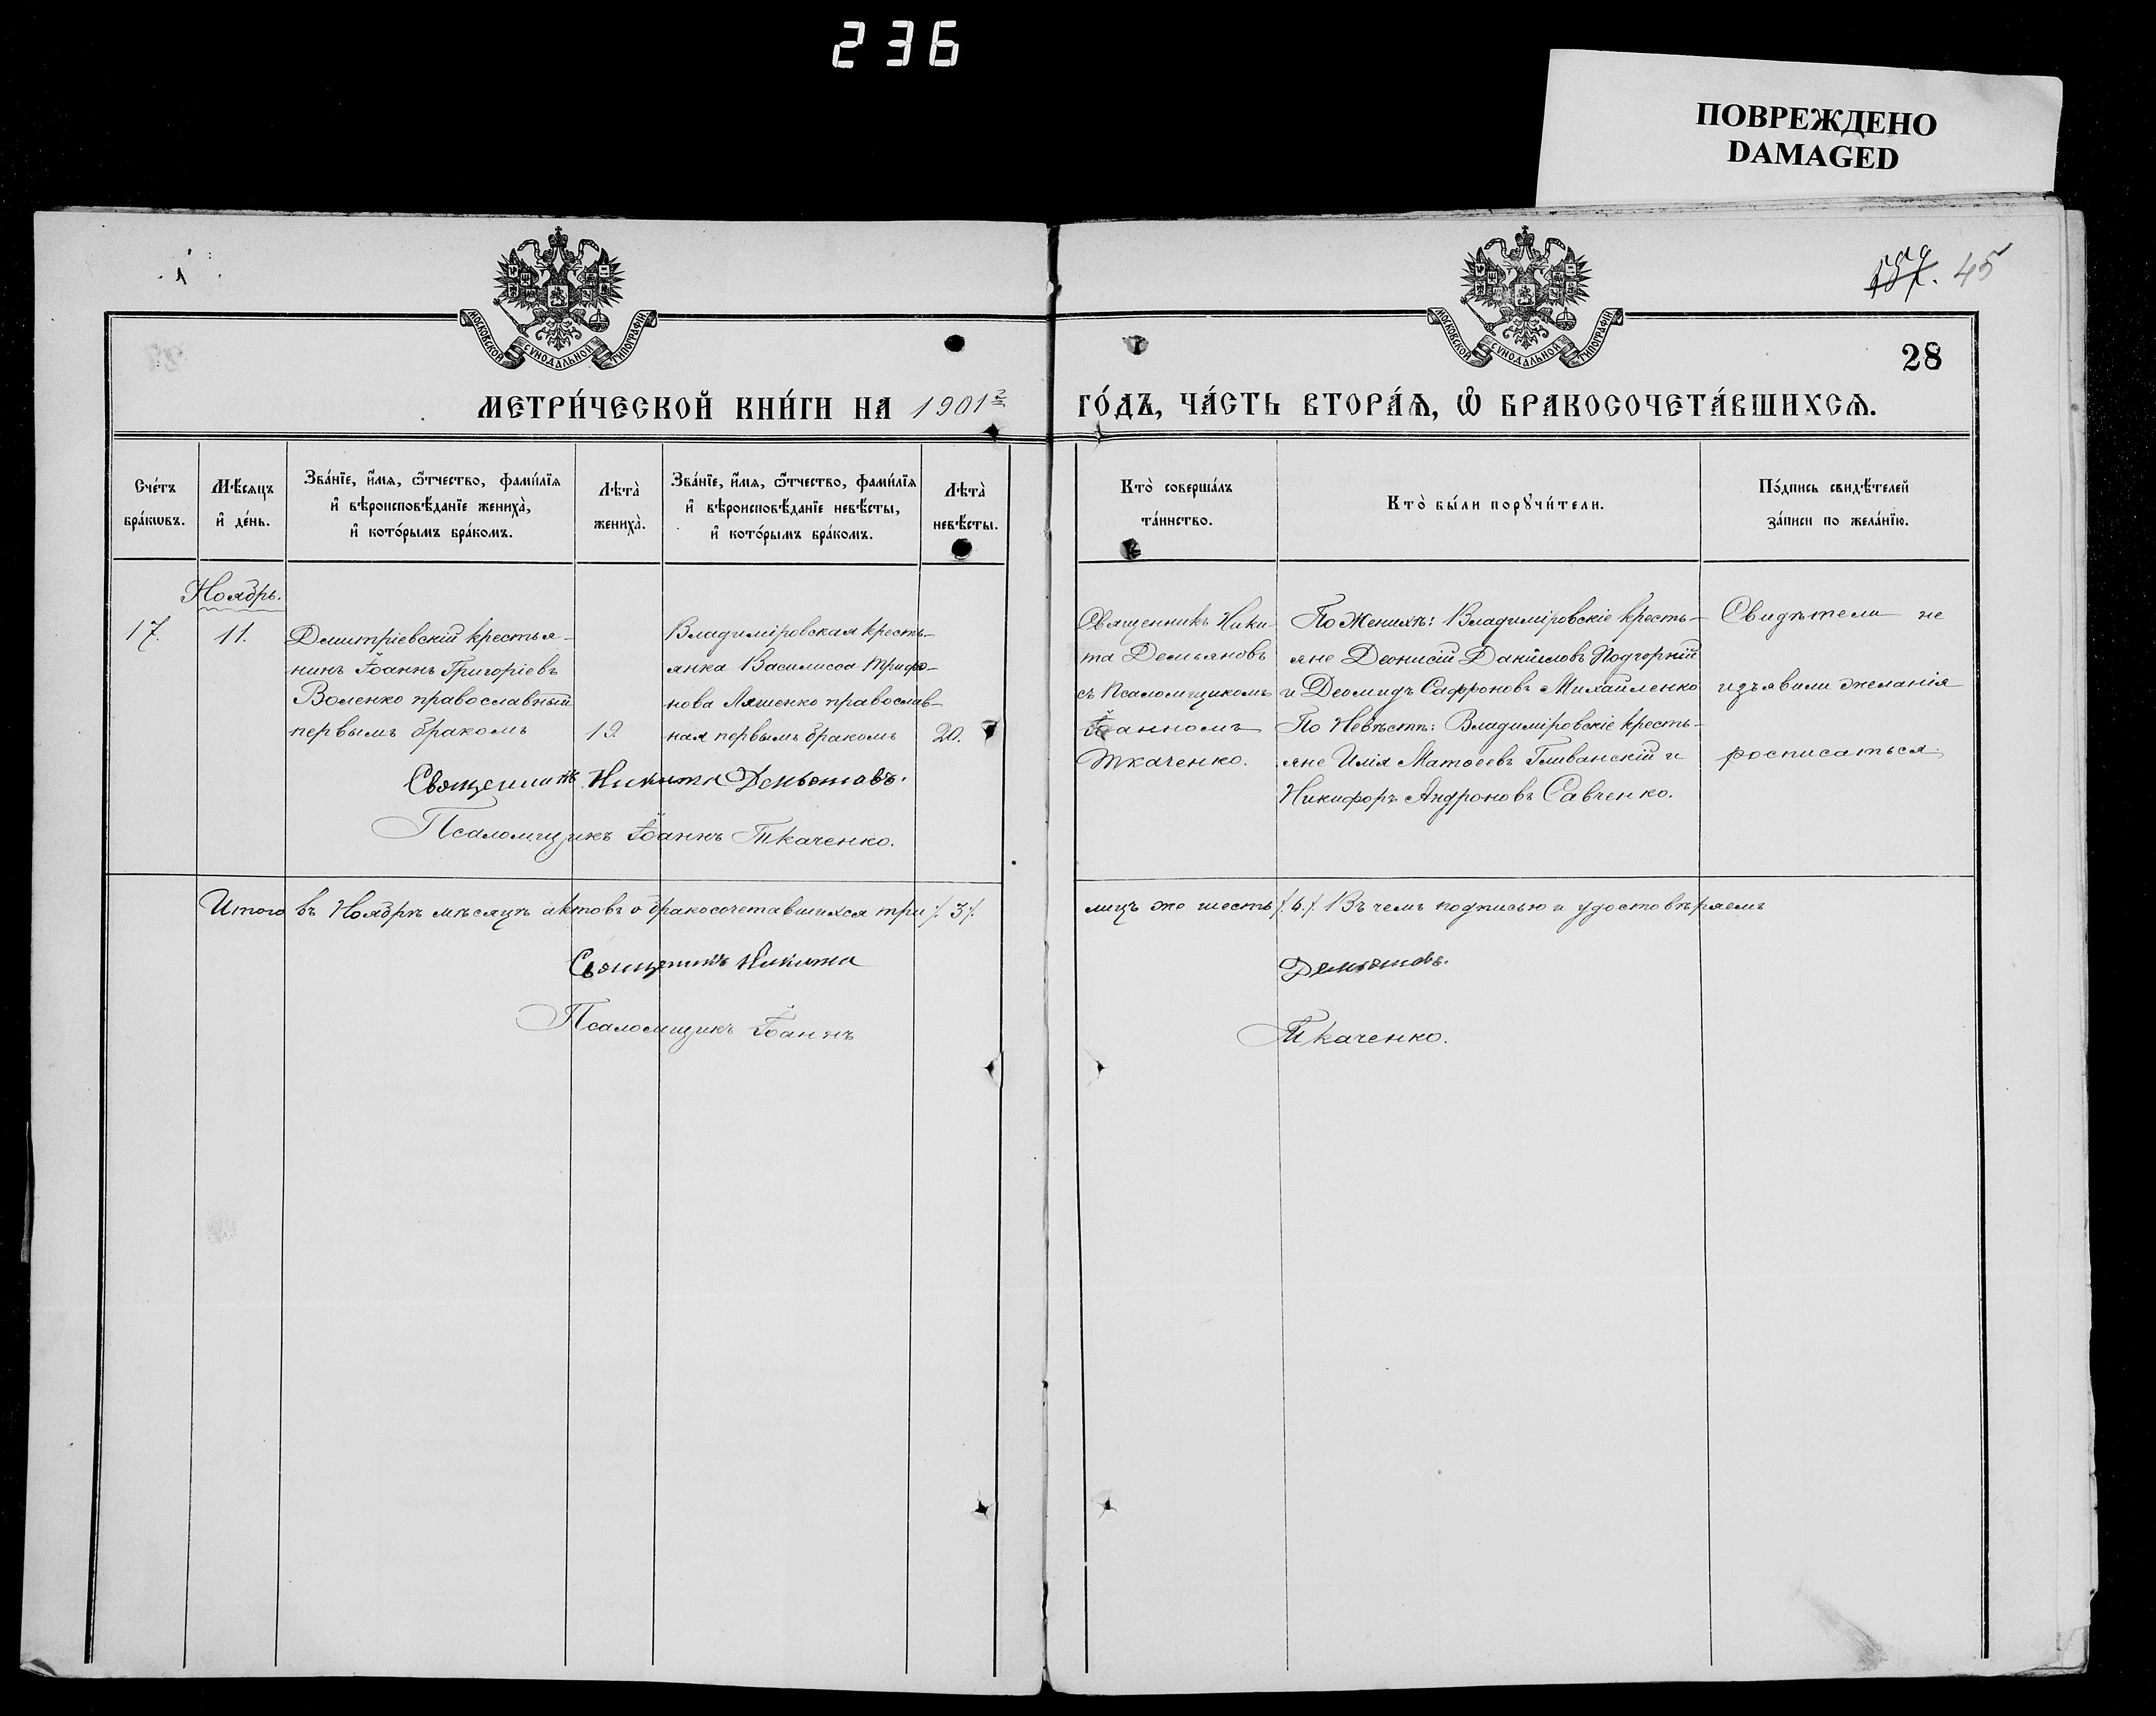 236
ПОВРЕЖДЕНО
DAMAGED
45
МОСКОВСКОЙ СѴНОДАЛЬНОЙ ТИПОГРАФІИ
МОСКОВСКОЙ СѴНОДАЛЬНОЙ ТИПОГРАФІИ
28
МЕТРИ́ЧЕСКОЙ КНИ́ГИ НА 1901 г
ГО́ДЪ, ЧА́СТЬ ВТОРА́Ѧ, Ѡ҆ БРАКОСОЧЕТА́ВШИХСѦ.
Сче́тъ
бра́кѡвъ.
Мѣ́сяцъ
и҆ де́нь.
Зва́нїе, и҆́мѧ, ѻ҆́тчество, фами́лїѧ
и҆ вѣроисповѣ́данїе женихà,
и҆ кото́рымъ бра́комъ.
Лѣтà
женихà.
Зва́нїе, и҆́мѧ, ѻ҆́тчество, фами́лїѧ
и҆ вѣроисповѣ́данїе невѣ́сты,
и҆ кото́рымъ бра́комъ.
Лѣтà
невѣ́сты.
Ктò соверша́лъ
та́инство.
Ктò бы́ли порꙋчи́тели.
По́дпись свидѣ́телей
за́писи по жела́нїю.
Ноябрь.
17.
11.
Дмитріевскій крестья-
нинъ Іоаннъ Григоріевъ
Воленко православный
первымъ бракомъ
19.
Владиміровская кресть-
янка Василисса Трифо-
нова Ляшенко православ-
ная первымъ бракомъ
20.
Священникъ Ники
та Демьяновъ
съ Псаломщикомъ
Іоанномъ
Ткаченко.
По Женихѣ: Владиміровскіе кресть-
яне Діонисій Даніиловъ Подгорній
и Деомидъ Сафроновъ Михайленко
По Невѣстѣ: Владиміровскіе кресть-
яне Илія Матѳеевъ Гливанскій и
Никифоръ Андроновъ Савченко.
Свидѣтели не
изъявили желанія
росписаться.
Священникъ Никита Демьяновъ.
Псаломщикъ Іоаннъ Ткаченко.
Итого въ Ноябрѣ мѣсяцѣ актовъ о бракосочетавшихся три /. 3 /.
лицъ же шесть /. 6. /. Въ чемъ подписью и удостовѣряемъ
Священникъ Никита
Демьяновъ.
Псаломщикъ Іоаннъ
Ткаченко.